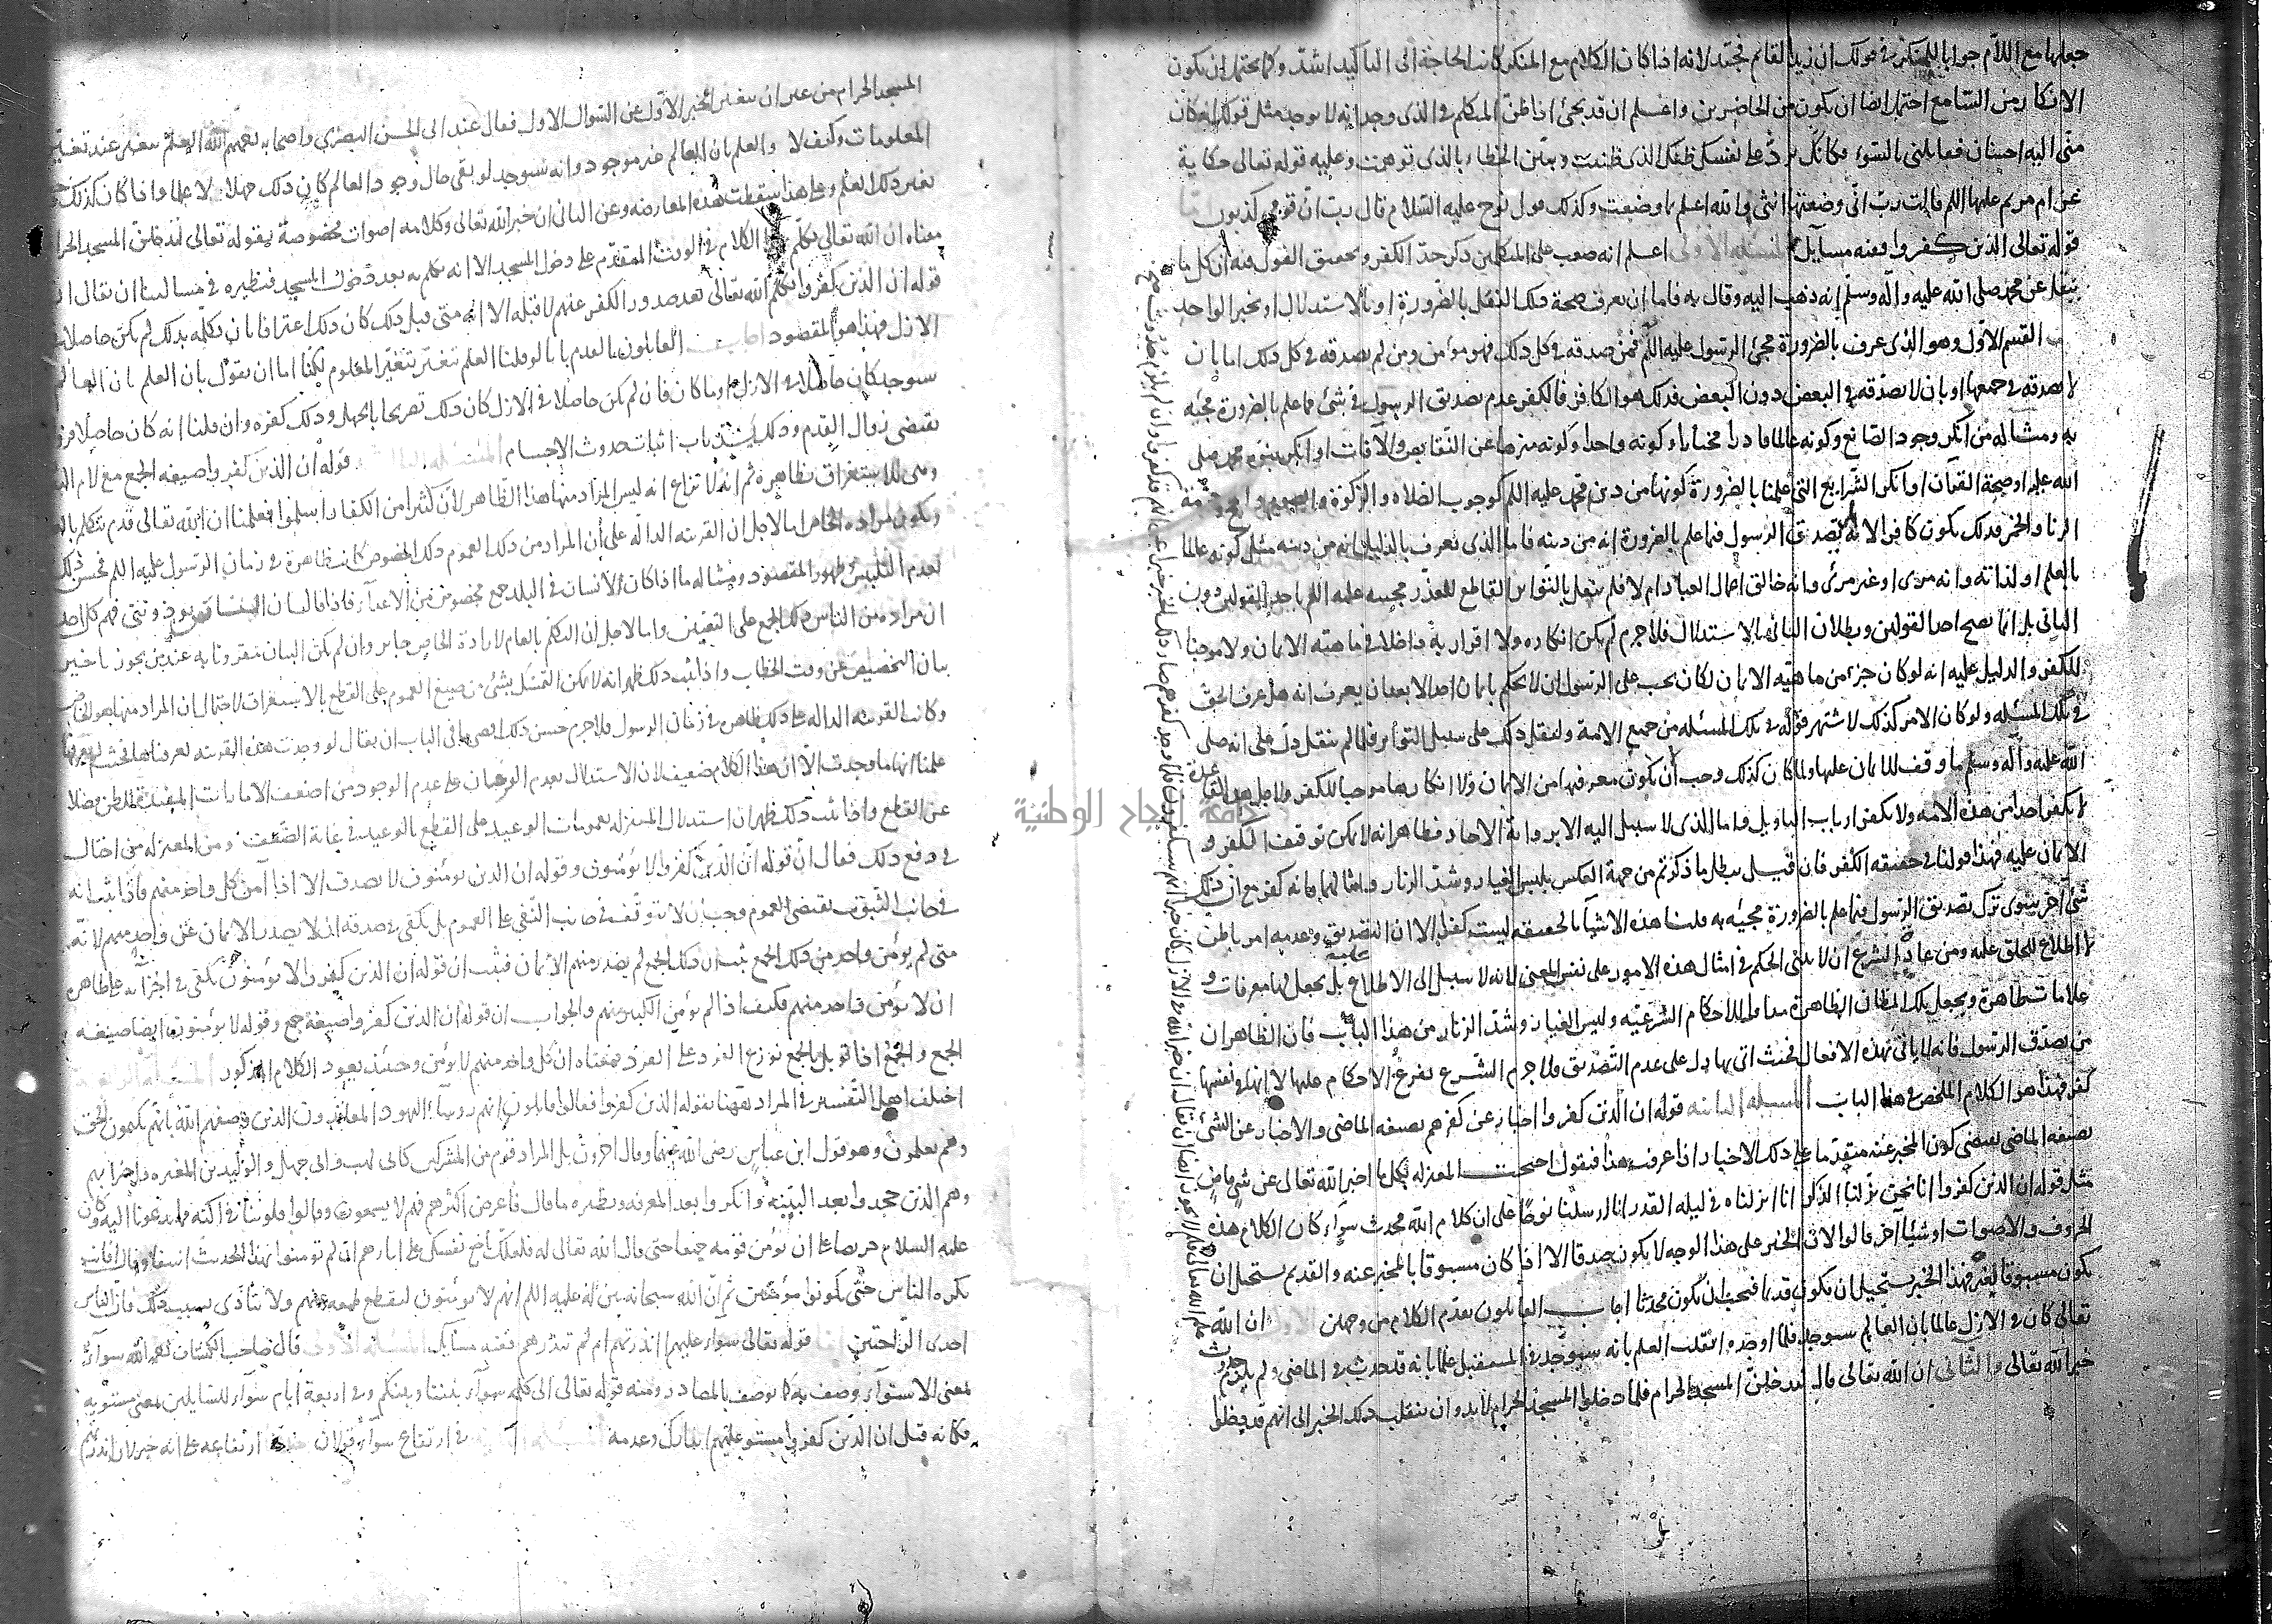 جعلها مع اللام جوابا للمنكر في قولك ان زيدا لقائم فجيد لانه اذا كان الكلام مع المنكر كانت الحاجة الى التأكيد اشد وكما يحتمل ان يكون
الانكار من السامع احتمل ايضا ان يكون من الحاضرين واعلم ان قد يجئ اذا ظن المتكلم في الذي وجد انه لا يوجد مثل قولك انه كان
مني اليه احسان فعاملني بالسوء فكانك ترد على نفسك ظنك الذي ظننت وتبين الخطاء بالذي توهمت وعليه قوله تعالى حكاية
عن ام مريم عليها اللم قالت رب اني وضعتها انثى والله اعلم بما وضعت وكذلك قول نوح عليه السلام قال رب ان قومي كذبون
قوله تعالى الذين كفروا وفيه مسآيل المسئلة الاولى اعلم انه صعب على المتكلمين ذكر حد الكفر وتحقيق القول فيه ان كل ما
ينقل عن محمد صلى الله عليه وآله وسلم انه ذهب اليه وقال به فاما ان يعرف صحة ذلك النقل بالضرورة او بالاستدلال او بخبر الواحد
القسم الاول وهو الذي عرف بالضرورة مجئ الرسول عليه اللم به فمن صدقه في كل ذلك فهو مؤمن ومن لم يصدقه في كل ذلك اما بان
لا يصدقه في جميعها او بان لا يصدقه في البعض دون البعض فذلك هو الكافر فالكفر عدم تصديق الرسول في شئ مما علم بالضرورة مجيئه
به ومثاله من انكر وجود الصانع وكونه عالما قادرا مختارا وكونه واحدا وكونه منزها عن النقايص والآفات او انكر نبوة محمد صلى
الله عليه او صحة القران او انكر الشرايع التي علمنا بالضرورة كونها من دين محمد عليه اللم كوجوب الصلاة والزكوة والصوم والحج وحرمة
الربا والخمر فذلك يكون كافرا لانه ترك تصديق الرسول فيما علم بالضرورة انه من دينه فاما الذي يعرف بالدليل انه من دينه مثل كونه عالما
بالعلم او لذاته وانه مرئي او غير مرئي وانه خالق اعمال العباد ام لا فلم ينقل بالتواتر القاطع للعذر مجيئه عليه اللم باحد القولين دون
الثاني بل انما يصح احد القولين وبطلان الثاني بالاستدلال فلا جرم لم يكن انكاره ولا اقرار به داخلا في ماهية الايمان ولا موجبا
للكفر والدليل عليه انه لو كان جزء من ماهية الايمان لكان يجب على الرسول ان لا يحكم بايمان احد الا بعد ان يعرف انه هل عرف الحق
في تلك المسئلة ولو كان الامر كذلك لاشتهر قوله في تلك المسئلة من جميع الامة ولنقل ذلك على سبيل التواتر فلما لم ينقل دل على انه صلى
الله عليه وآله وسلم ما وقف الايمان عليها ولما كان كذلك وجب ان يكون معرفتها من الايمان ولا انكارها موجبا للكفر ولاجل هذه القاعدة
لا يكفر احد من هذه الامة ولا يكفر ارباب التاويل واما الذي لا سبيل اليه الا برواية الآحاد فظاهر انه لا يمكن توقف الكفر و
الايمان عليه فهذا قولنا في حقيقة الكفر فان قيل يبطل ما ذكرتم من جهة العكس بلبس الغيار وشد الزنار وامثالهما فانه كفر مع ان ذلك
شئ آخر سوى ترك تصديق الرسول فيما علم بالضرورة مجيئه به قلنا هذه الاشيآء بالحقيقة ليست كفرا الا ان التصديق وعدمه امر باطن
لا اطلاع للخلق عليه ومن عادة الشرع ان لا يبني الحكم في امثال هذه الامور على نفس المعنى لانه لا سبيل الى الاطلاع عليه بل يجعل لها معرفات و
علامات ظاهرة ويجعل تلك المظان الظاهرة مدارا للاحكام الشرعية ولبس الغيار وشد الزنار من هذا الباب فان الظاهر ان
من يصدق الرسول فانه لا يأتي بهذه الافعال فحيث اتى بها دل على عدم التصديق فلا جرم الشرع يفرع الاحكام عليها لا انها في نفسها
كفر فهذا هو الكلام الملخص في هذا الباب المسئلة الثانية قوله ان الذين كفروا اخبار عن كفرهم بصيغة الماضي والاخبار عن الشئ
بصيغة الماضي يقتضي كون المخبر عنه متقدما على ذلك الاخبار اذا عرفت هذا فنقول احتجت المعتزلة بكل ما اخبر الله تعالى عن شئ ماض
مثل قوله ان الذين كفروا انا نحن نزلنا الذكر انا انزلناه في ليلة القدر انا ارسلنا نوحا على ان كلام الله محدث سوآء كان الكلام هذه
الحروف والاصوات او شيئا آخر قالوا لان الخبر على هذا الوجه لا يكون صدقا الا اذا كان مسبوقا بالمخبر عنه والقديم يستحيل ان
يكون مسبوقا بغيره فهذا الخبر يستحيل ان يكون قديما فيجب ان يكون محدثا اجاب القايلون بقدم الكلام من وجهين الاول ان الله
تعالى كان في الازل عالما بان العالم سيوجد فلما اوجده انقلب العلم بانه سيوجد في المستقبل علما بانه قد حدث في الماضي ولم يلزم حدوث
علم الله تعالى فلم لا يجوز ايضا ان يقال ان خبر الله في الازل كان خبرا بانهم سيكفرون فلما وجد كفرهم صار ذلك الخبر خبرا عن انهم قد كفروا وان لم يلزم حدوث صح
خبر الله تعالى والثاني ان الله تعالى قال لتدخلن المسجد الحرام فلما دخلوا المسجد الحرام لا بد وان ينقلب ذلك الخبر الى انهم قد دخلوا
المسجد الحرام من غير ان يتغير الخبر الاول عن السؤال الاول فقال عند ابي الحسين البصري واصحابه رحمهم الله العلم يتغير عند تغير
المعلومات وكيف لا والعلم بان العالم غير موجود وانه سيوجد لو بقي حال وجود العالم كان ذلك جهلا لا علما واذا كان كذلك
تغير ذلك العلم وعلى هذا سقطت هذه المعارضة وعن الثاني ان خبر الله تعالى وكلامه اصوات مخصوصة بقوله تعالى لتدخلن المسجد الحرام
معناه ان الله تعالى تكلم بهذا الكلام في الوقت المتقدم على دخول المسجد الا انه تكلم به بعد دخول المسجد فنظيره في مسالتنا ان يقال ان
قوله ان الذين كفروا تكلم الله تعالى بعد صدور الكفر عنهم لا قبله الا انه متى قيل ذلك كان ذلك اعترافا بان تكلمه بذلك لم يكن حاصلا في
الازل فهذا هو المقصود اجاب القايلون بالقدم بانا لو قلنا العلم يتغير بتغير المعلوم لكنا اما ان نقول بان العلم بان العالم
سيوجد كان حاصلا في الازل او ما كان فان لم يكن حاصلا في الازل كان ذلك تصريحا بالجهل وذلك كفره وان قلنا انه كان حاصلا فزواله
يقتضي زوال القدم وذلك يسد باب اثبات حدوث الاجسام المسئلة الثالثة قوله ان الذين كفروا صيغة الجمع مع لام التعريف
وهي للاستغراق بظاهره ثم انه لا نزاع انه ليس المراد منها هذا الظاهر لان كثيرا من الكفار اسلموا فعلمنا ان الله تعالى قد يتكلم بالعام
ويكون مراده الخاص اما لاجل ان القرينة الدالة على ان المراد من ذلك العموم ذلك الخصوص كانت ظاهرة في زمان الرسول عليه اللم فحسن ذلك
لعدم التلبيس وظهور المقصود ومثاله ما اذا كان للانسان في البلد جمع مخصوص من الاعدآء فاذا قال ان الناس يؤذونني فهم كل احد
ان مراده من الناس ذلك الجمع على التعيين واما لاجل ان التكلم بالعام لارادة الخاص جايز وان لم يكن البيان مقرونا به عند من يجوز تاخير
بيان التخصيص عن وقت الخطاب واذا ثبت ذلك ظهر انه لا يمكن التمسك بشئ من صيغ العموم على القطع بالاستغراق لاحتمال ان المراد منها هو الخاص
وكانت القرينة الدالة على ذلك ظاهرة في زمان الرسول فلا جرم حسن ذلك اقصى ما في الباب ان يقال لو وجدت هذه القرينة لعرفناها وحيث لم نعرفها
علمنا انها ما وجدت الا ان هذا الكلام ضعيف لان الاستدلال بعدم الوجدان على عدم الوجود من اضعف الامارات المفيدة للظن فضلا
عن القطع واذا ثبت ذلك ظهر ان استدلال المعتزلة بعمومات الوعيد على القطع بالوعيد في غاية الضعف ومن المعتزلة من احتال
في دفع ذلك فقال ان قوله ان الذين كفروا لا يؤمنون وقوله ان الذين يؤمنون لا يصدق الا اذا آمن كل واحد منهم فاذا ثبت انه
في جانب الثبوت يقتضي العموم وجب ان لا يتوقف في جانب النفي على العموم بل يكفي في صدقه ان لا يصدر الايمان عن واحد منهم لانه
متى لم يؤمن واحد من ذلك الجمع ثبت ان ذلك الجمع لم يصدر منهم الايمان فثبت ان قوله ان الذين كفروا لا يؤمنون يكفي في اجرائه على ظاهره
ان لا يؤمن واحد منهم فكيف اذا لم يؤمن الكثير منهم والجواب ان قوله ان الذين كفروا صيغة جمع وقوله لا يؤمنون ايضا صيغة
الجمع والجمع اذا قوبل بالجمع توزع الفرد على الفرد فمعناه ان كل واحد منهم لا يؤمن وحينئذ يعود الكلام المذكور المسئلة الرابعة
اختلف اهل التفسير في المراد ههنا بقوله الذين كفروا فقال قايلون انهم رؤسآء اليهود المعاندون الذين وصفهم الله بانهم يكتمون الحق
وهم يعلمون وهو قول ابن عباس رضي الله عنهما وقال آخرون بل المراد قوم من المشركين كابي لهب وابي جهل والوليد بن المغيرة واضرابهم
وهم الذين جحدوا بعد البينة وانكروا بعد المعرفة ونظيره ما قال فاعرض اكثرهم فهم لا يسمعون وقالوا قلوبنا في اكنة مما تدعونا اليه وكان
عليه السلام حريصا على ان يؤمن قومه جميعا حتى قال الله تعالى له فلعلك باخع نفسك على اثارهم ان لم يؤمنوا بهذا الحديث اسفا وقال افانت
تكره الناس حتى يكونوا مؤمنين ثم ان الله سبحانه بين له عليه اللم انهم لا يؤمنون ليقطع طمعه عنهم ولا يتأذى بسبب ذلك فان الياس
احدى الراحتين قوله تعالى سوآء عليهم أانذرتهم ام لم تنذرهم ففيه مسآيل المسئلة الاولى قال صاحب الكشاف رحمه الله سوآء
بمعنى الاستوآء وصف به كما يوصف بالمصادر ومنه قوله تعالى الى كلمة سوآء بيننا وبينكم وفي اربعة ايام سوآء للسايلين بمعنى مستوية
فكانه قيل ان الذين كفروا مستو عليهم انذارك وعدمه في ارتفاع سوآء قولان ارتفاعه على انه خبر لان